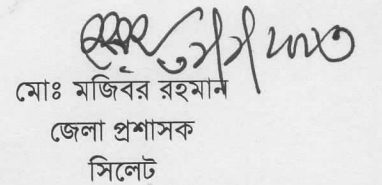 মোঃ মজিবর রহমান
জেলা প্রশাসক
সিলেট